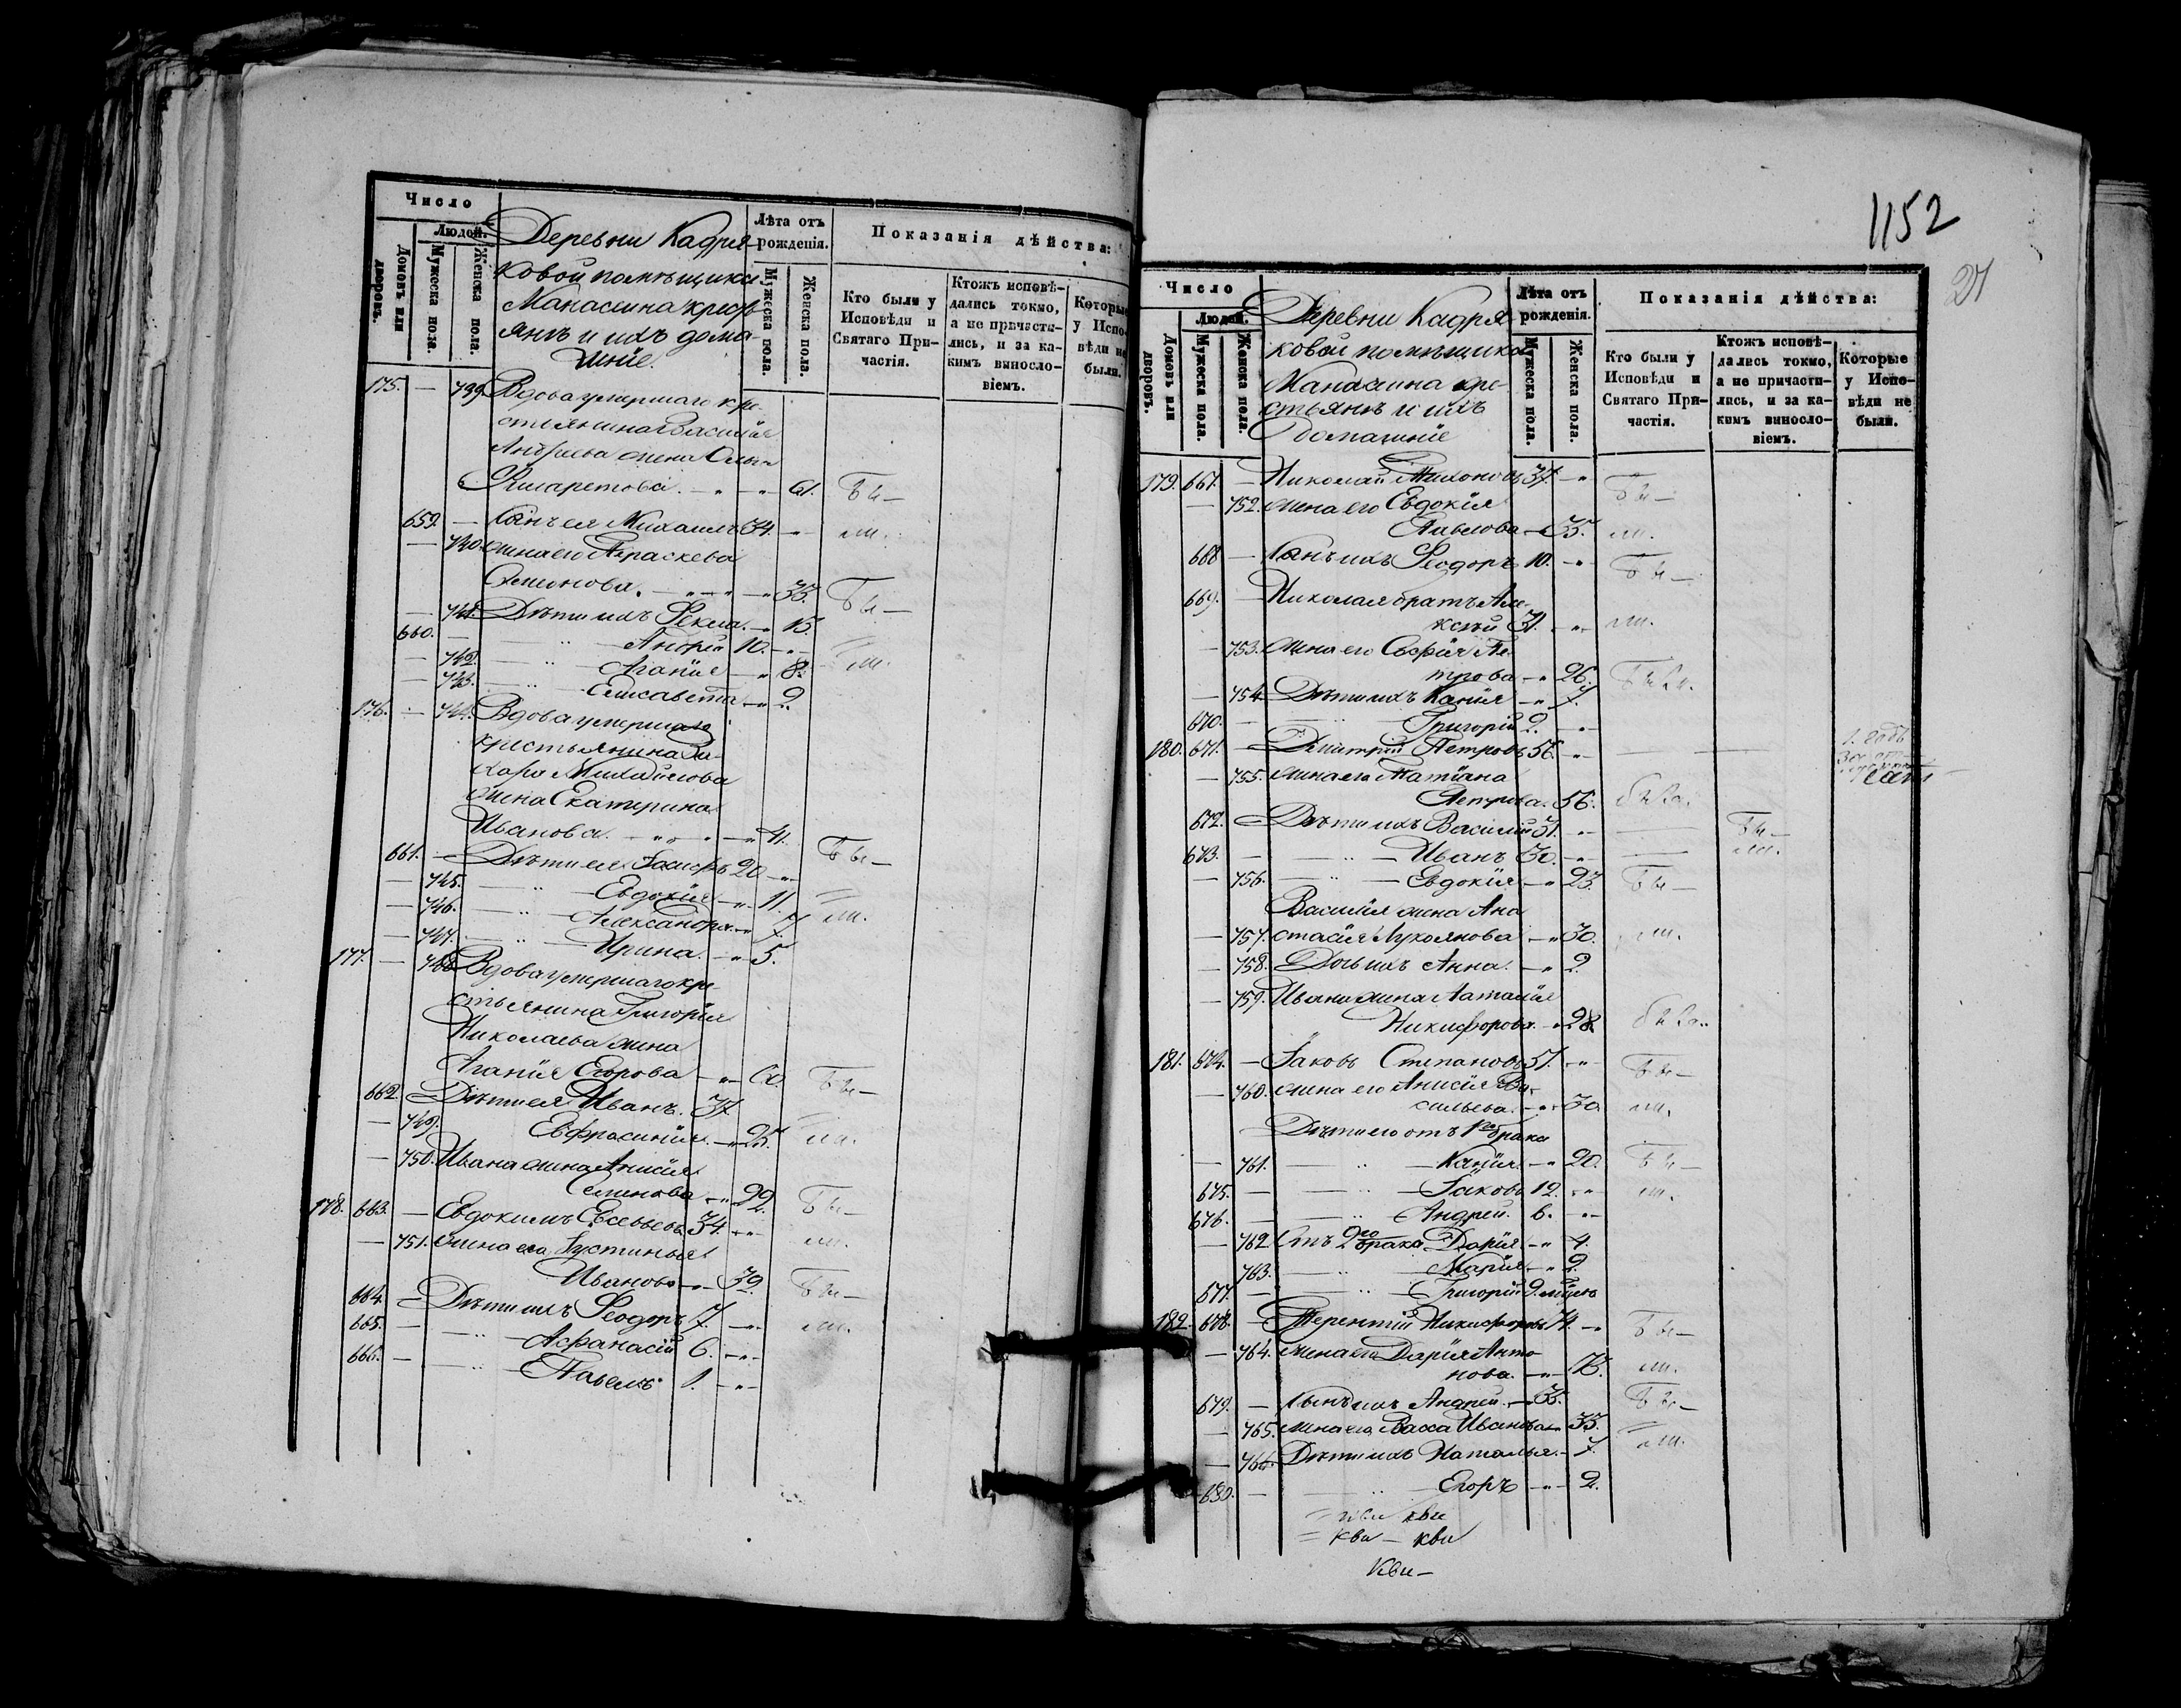 Число
Людей.
Домовъ или дворовъ.
Мужеска пола.
Женска пола.
Деревни Кадря-
ковой помѣщика
Манасеина кресть
янъ и ихъ дома-
шніе.
Лѣта отъ рожденія.
Мужеска пола.
Женска пола.
Показанія дѣйства:
Кто были у Исповѣди и Святаго При-частія.
Ктожъ исповѣ-дались токмо, а не причасти-лись, и за ка-кимъ винosло-віемъ.
Которые у Испо-вѣди не были.
175. — 739. Вдова умершаго кре-
стьянина Василія
Андреева жена Ольга
Филаретова. — „ — 61. Бы—
659. — Сынъ ея Михаилъ 34. — „ ли.
— 740. жена его Параскева
Симонова. — „ — 35. Бы—
— 741. Дѣти ихъ Фекла. — „ 15.
660. — — „ — Андрей 10. — „ — ли.
— 742. — „ — Агапія — „ 8.
— 743. — „ — Елисавета — „ 2.
176. — 744. Вдова умершаго
крестьянина За-
хара Михайлова
жена Екатерина
Иванова. — „ — 41. Бы—
661. — Дѣти ея Іосифъ 20. — „ —
— 745. — „ — Евдокія — „ 11.
— 746. — „ — Александра — „ 7. ли.
— 747. — „ — Ирина. — „ 5.
177. — 748. Вдова умершаго кре-
стьянина Григорія
Николаева жена
Агапія Егорова — „ — 60. Бы—
662. Дѣти ея Иванъ. 37.
— 749. Евфросинія. — „ 25. ли.
— 750. Ивана жена Анисія
Семенова — „ 29. Бы—
178. 663. — Евдокимъ Евсевьевъ 34. — „ — ли.
— 751. жена его Іустинья
Иванова — „ — 39. Бы—
664. — Дѣти ихъ Ѳеодоръ 7. — „ —
665. — — „ — Афанасій 6. — „ — ли.
666. — — „ — Павелъ 1. — „ —
1152
21
Число
Людей.
Домовъ или дворовъ.
Мужеска пола.
Женска пола.
Деревни Кадря-
ковой помѣщика
Манасеина кре-
стьянъ и ихъ
домашніе
Лѣта отъ рожденія.
Мужеска пола.
Женска пола.
Показанія дѣйства:
Кто были у Исповѣди и Святаго При-частія.
Ктожъ исповѣ-дались токмо, а не причасти-лись, и за ка-кимъ винosло-віемъ.
Которые у Испо-вѣди не были.
179. 667. — Николай Тихоновъ 37. — „ Бы—
— 752. жена его Евдокія
Павлова — „ 35. ли.
668 — Сынъ ихъ Ѳеодоръ 10. — „ Бы—
669. — Николая братъ Але-
ксѣй 31. — „ ли.
— 753. жена его Софія Пе-
трова — „ 26. Была.
— 754 Дѣти ихъ Капія — „ 7.
670. — — „ — Григорій 2. — „ —
180. 671. — Дмитрій Петровъ 56. — „ — — —
— 755. жена его Татіана
Петрова. 56. была.
672. — Дѣти ихъ Василій 31. — „ — Бы—
673. — — „ — Иванъ 30. — „ — ли.
— 756. — „ — Евдокія — „ 23. Бы—
Василія жена Ана
— 757. стасія Лукоянова — „ 30. ли.
— 758. Дочь ихъ Анна. — „ 2.
— 759. Ивана жена Наталія
Никифорова. — „ 28. была.
181. 674. — Іаковъ Степановъ 51. — „ — Бы—
— 760. жена его Анисія Ва-
сильева. — „ 30. ли.
Дѣти его отъ 1го брака
— 761. — „ — Капія. — „ 20. Бы—
675. — — „ — Іаковъ 12. — „ — ли.
676. — — „ — Андрей. 6. — „ —
— 762. Отъ 2го брака Дарія. — „ 4.
763. — „ — Марія. — „ 2.
677. — — „ — Григорій 2. мѣсяц
182. 678. — Терентій Никифоровъ 74. — „ Бы—
— 764. жена его Дарія Анто-
нова. — „ — 73. ли.
679. — Сынъ ихъ Андрей. — 35. Бы—
— 765. жена его Васса Иванова 33.
— 766. Дѣти ихъ Наталья. — 7. ли.
680. — — „ — Егоръ — „ — 2.
кви
= кви — кви
Кви—